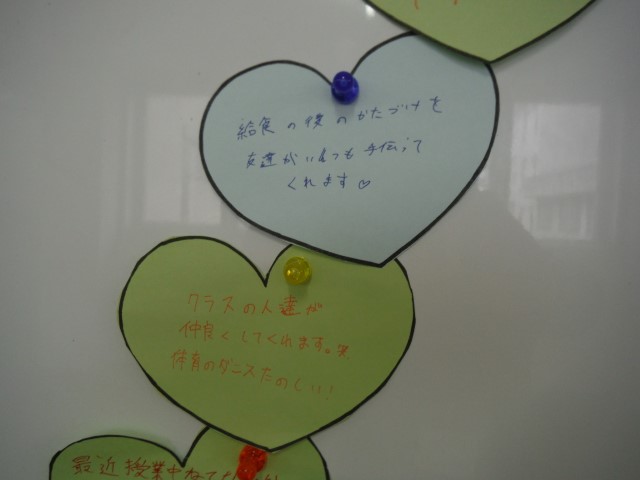 給食の後のかたづけを
友達がいつも手伝って
くれます♡
クラスの人達が
仲良くしてくれます。笑
体育のダンスたのしい!
最近授業中ねて